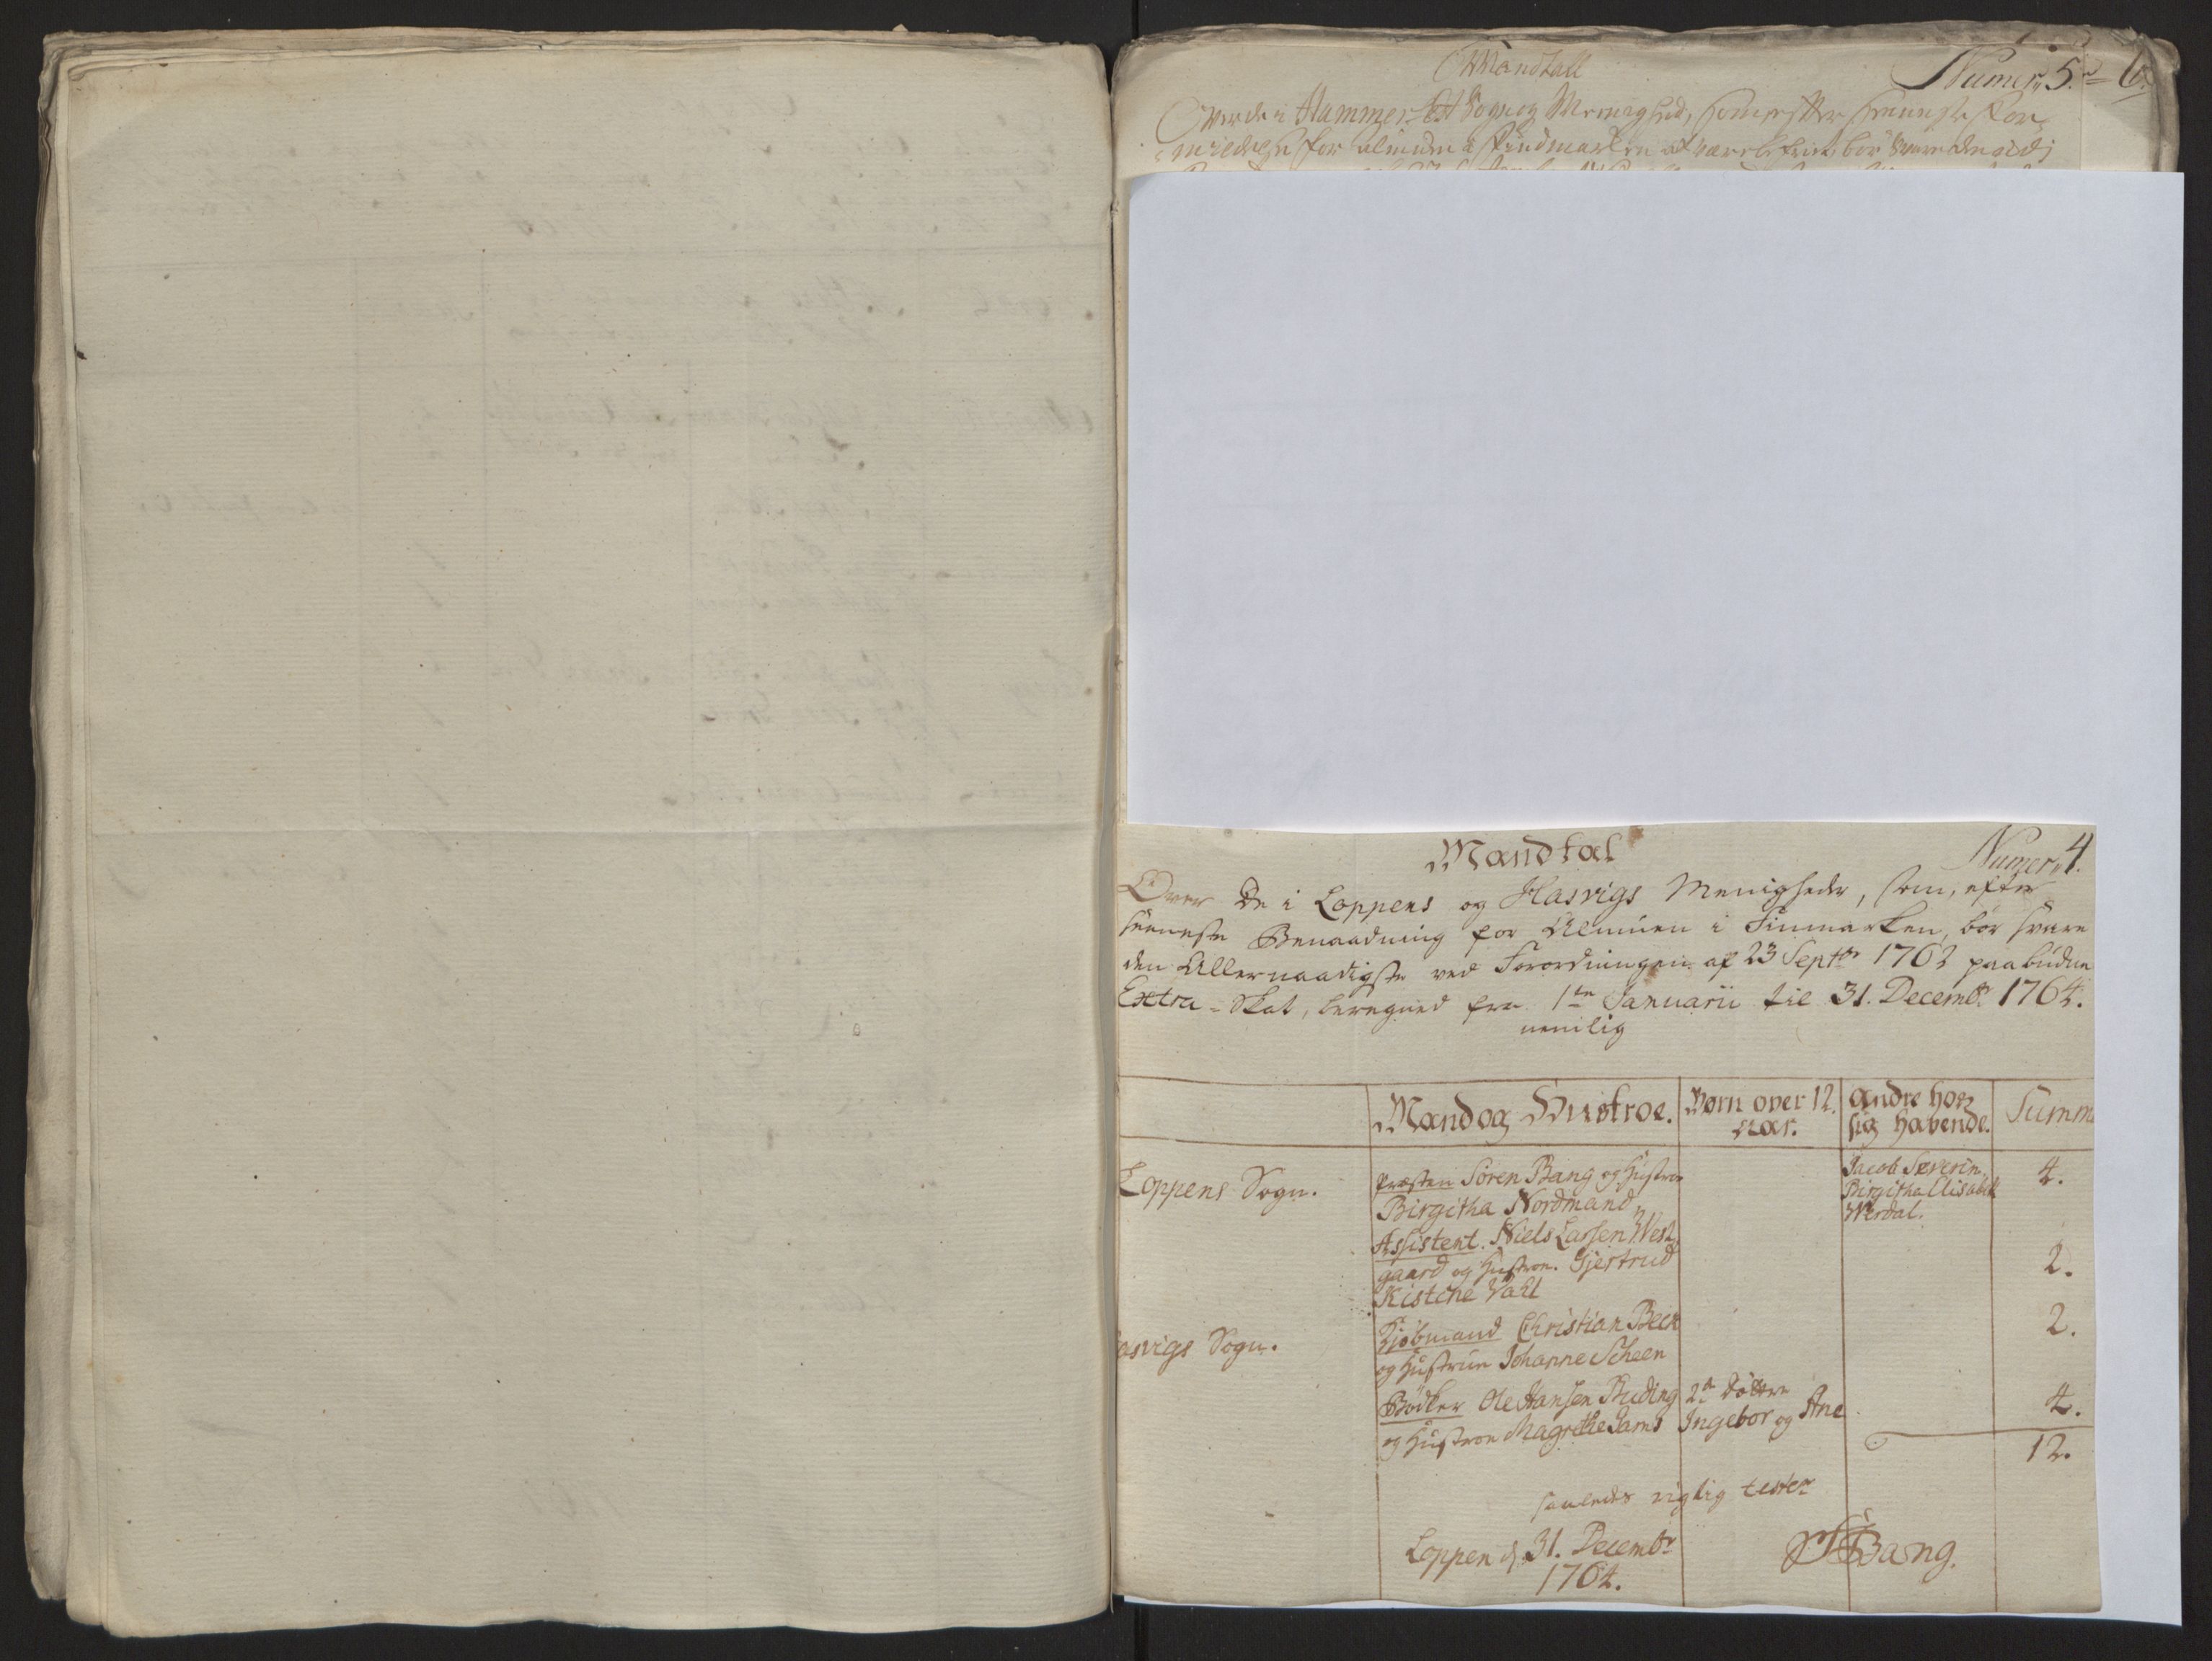 Mandtall
Numer 5.
Over de i Hammerfest Sogn og Menighed, som efter
for almuen i Findmarken
Mandtal
Numer 4.
Over De i Loppens og Hasvigs Menigheder, som, efter
seeneste Benaadning for Almuen i Finmarken, bör svare
den Allernaadigste ved Forordningen af 23 Septbr 1762 paabudne
Extra-Skat, beregned fra 1te Januarii til 31. Decembr 1764.
nemlig
Mand og Hustroe.
Börn over 12.
Aar.
Andre hos
sig havende.
Summ
Loppens Sogn.
Præsten Sören Bang og Hustroe
Birgitha Nordmand,
Jacob Severin,
Birgitha Elisabeth
Werdal.
4.
Assistent. Niels Larsen West
gaard og Hustroe. Gjertrud
Kistine Vahl
2.
asvigs Sogn.
Kjöbmand Christian Beck
og Hustrue Johanne Scheen
2.
Bödker Ole Hansen Buding
og Hustroe Magrethe Jams
2de Döttre
Ingebor og Ane
4.
12.
saaledes rigtig tester
Loppen d. 31. Decembr
1764.
SBang.